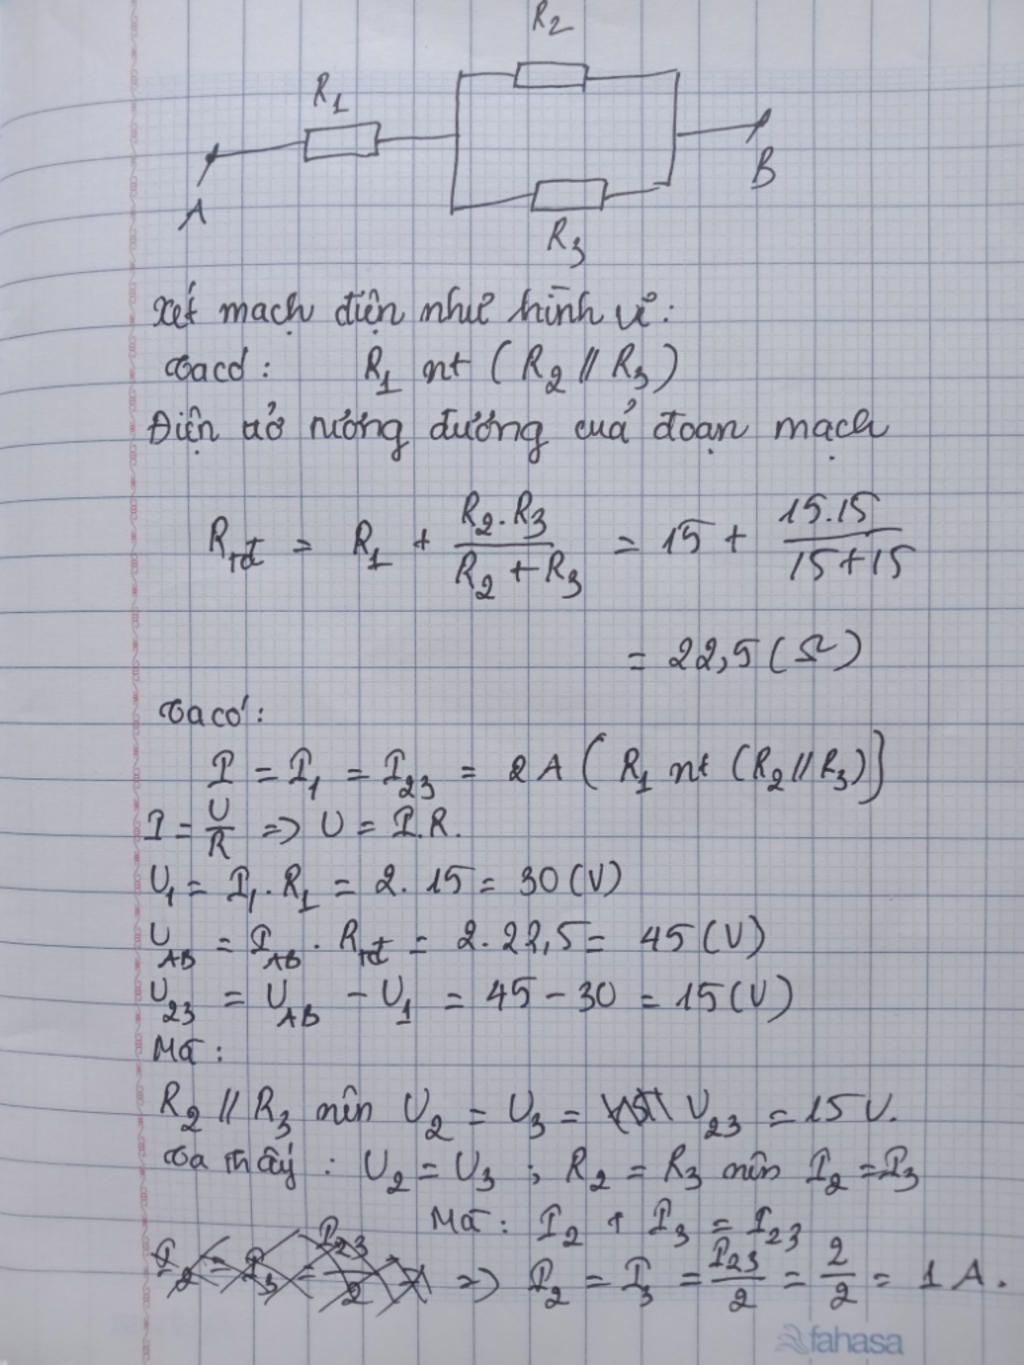 R2
R1
A
B
R3
Xét mạch điện như hình vẽ:
Ta có: R1 nt (R2 // R3)
Điện trở tương đương của đoạn mạch
Rtđ = R1 + R2.R3 / R2 + R3 = 15 + 15.15 / 15+15
= 22,5 (Ω)
Ta có:
I = I1 = I23 = 2A (R1 nt (R2 // R3))
I = U/R => U = I.R.
U1 = I1.R1 = 2.15 = 30 (V)
UAB = IAB.Rtđ = 2.22,5 = 45 (V)
U23 = UAB - U1 = 45 - 30 = 15 (V)
Mà:
R2 // R3 nên U2 = U3 = U23 = 15V.
Ta thấy: U2 = U3 ; R2 = R3 nên I2 = I3
Mà: I2 + I3 = I23
I2 = I3 = I23/2 => I2 = I3 = I23/2 = 2/2 = 1A.
fahasa